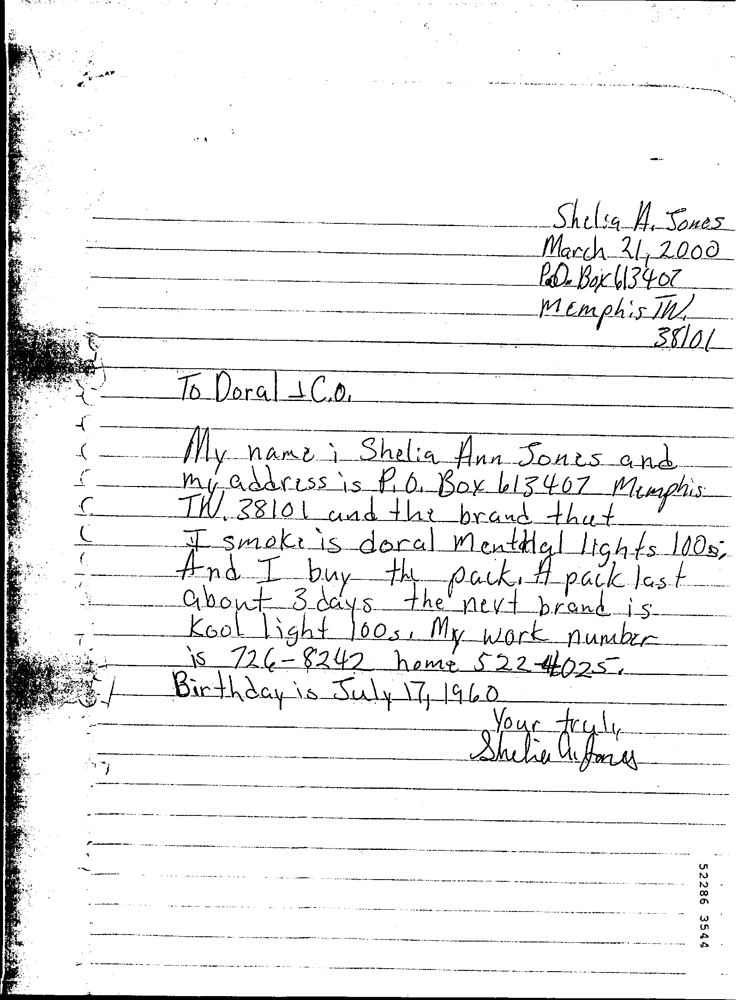 Shelia A. Jones
March 21, 2000
P.O. Box 613407
Memphis TN.
38101
To Doral & C.O.
My name i Shelia Ann Jones and
my address is P.O. Box 613407 Memphis
TN. 38101 and the brand that
I smoke is doral Menthal lights 100s.
And I buy the pack. A pack last
about 3 days the next brand is
Kool light 100s. My work number
is 726-8242 home 522-4025.
Birthday is July 17, 1960
Your truly
Shelia A. Jones
52286 3544